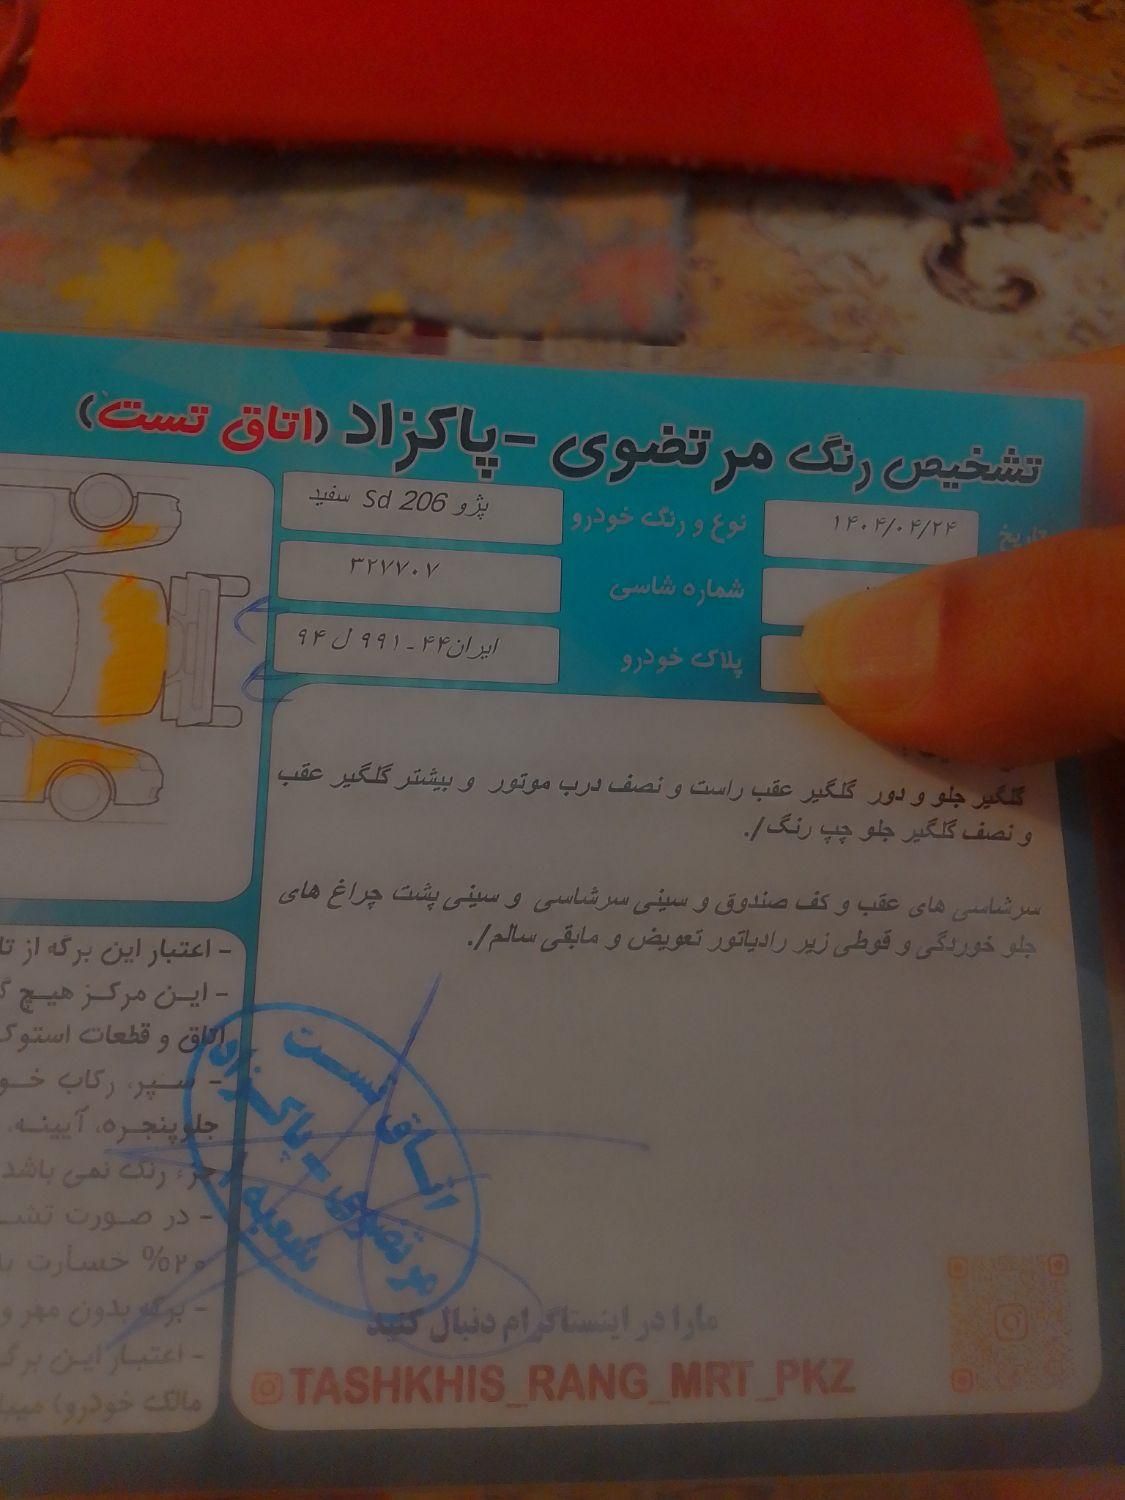 تشخیص رنگ مرتضوی - پاکزاد (اتاق تست)
تاریخ
۱۴۰۴/۰۴/۲۴
نوع و رنگ خودرو
پژو 206 Sd سفید
شماره شاسی
۳۲۷۷۰۷
پلاک خودرو
ایران۴۴ - ۹۹۱ ل ۹۴
گلگیر جلو و دور گلگیر عقب راست و نصف درب موتور و بیشتر گلگیر عقب
و نصف گلگیر جلو چپ رنگ/.
سرشاسی های عقب و کف صندوق و سینی سرشاسی و سینی پشت چراغ های
جلو خوردگی و قوطی زیر رادیاتور تعویض و مابقی سالم/.
اتاق تست
مرتضوی - پاکزاد
شعبه
مارا در اینستاگرام دنبال کنید
TASHKHIS_RANG_MRT_PKZ
- اعتبار این برگه از
- این مرکز هیچ
اتاق و قطعات استوک
- سپر، رکاب
جلوپنجره، آیینه،
جزء رنگ نمی باشد
- در صورت
۲۰% خسارت
- برگه بدون مهر و
- اعتبار این
مالک خودرو)